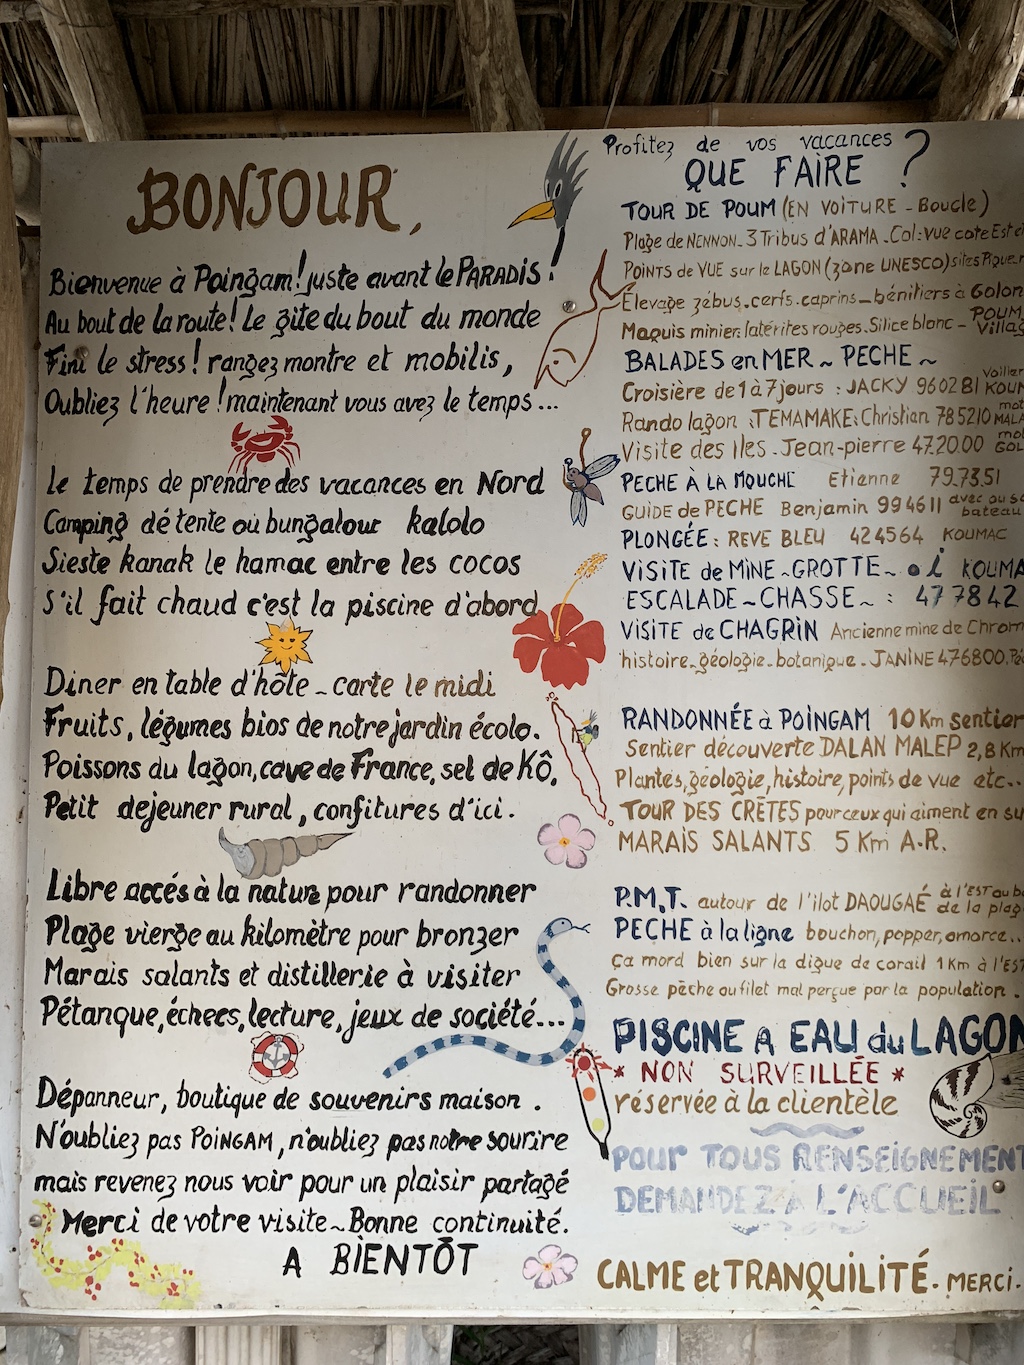 BONJOUR,
Bienvenue à Poingam! juste avant le PARADIS!
Au bout de la route! Le gite du bout du monde
Fini le stress! rangez montre et mobilis,
Oubliez l'heure! maintenant vous avez le temps...
le temps de prendre des vacances en Nord
Camping dé tente ou bungalour kalolo
Sieste kanak le hamac entre les cocos
S'il fait chaud c'est la piscine d'abord
Diner en table d'hôte - carte le midi
Fruits, légumes bios de notre jardin écolo.
Poissons du lagon, cave de France, sel de Kô,
Petit dejeuner rural, confitures d'ici.
Libre accés à la nature pour randonner
Plage vierge au kilomètre pour bronzer
Marais salants et distillerie à visiter
Pétanque, échecs, lecture, jeux de société...
Dépanneur, boutique de souvenirs maison.
N'oubliez pas POINGAM, n'oubliez pas notre sourire
mais revenez nous voir pour un plaisir partagé
Merci de votre visite ~ Bonne continuité.
A BÌENTÔT
Profitez de vos vacances
QUE FAIRE ?
TOUR DE POUM (EN VOITURE - Boucle)
Plage de NENNON - 3 Tribus d'ARAMA - Col: vue cote Est
POINTS de VUE sur le LAGON (zone UNESCO) sites
Elevage zébus. cerfs. caprins - bénitiers à Golon
Maquis minier: latérites rouges. Silice blanc - POUM Villag
BALADES en MER ~ PECHE ~
Croisière de 1 à 7 jours : JACKY 960281 voilier KOUM
Rando lagon : TEMAMAKE: Christian 785210 mot MALA
Visite des Iles - Jean-pierre 47.20.00 mot GOL
PECHE À LA MOUCHE Etienne 79.73.51
GUIDE de PECHE Benjamin 994611 avec ou sa bateau
PLONGÉE: REVE BLEU 424564 KOUMAC
VISITE de MINE ~ GROTTE ~ • i KOUMA
ESCALADE ~ CHASSE ~ : 477842
VISITE de CHAGRIN Ancienne mine de Chrom
histoire - géologie - botanique - JANINE 476800.
RANDONNÉE à POINGAM 10 Km sentier
Sentier découverte DALAN MALEP 2,8 Km
Plantes, géologie, histoire, points de vue etc..
TOUR DES CRÊTES pour ceux qui aiment en su
MARAIS SALANTS 5 Km A.R.
P.M.T. autour de l'ilot DAOUGAÉ à l'EST au bo de la plag
PECHE à la ligne bouchon, popper, amorce..
Ça mord bien sur la digue de corail 1 Km à l'EST
Grosse pêche au filet mal perçue par la population.
PISCINE A EAU du LAGON
* NON SURVEILLÉE *
réservée à la clientèle
POUR TOUS RENSEIGNEMENT
DEMANDEZ À L'ACCUEIL
CALME et TRANQUILITÉ. MERCI.